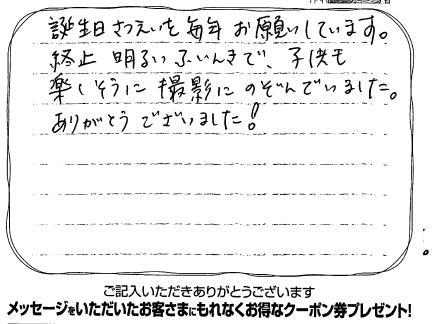 誕生日さつえいを毎年お願いしています。
終止明るいふいんきで、子供も
楽しそうに撮影にのぞんでいました。
ありがとうございました!
ご記入いただきありがとうございます
メッセージをいただいたお客さまにもれなくお得なクーポン券プレゼント!